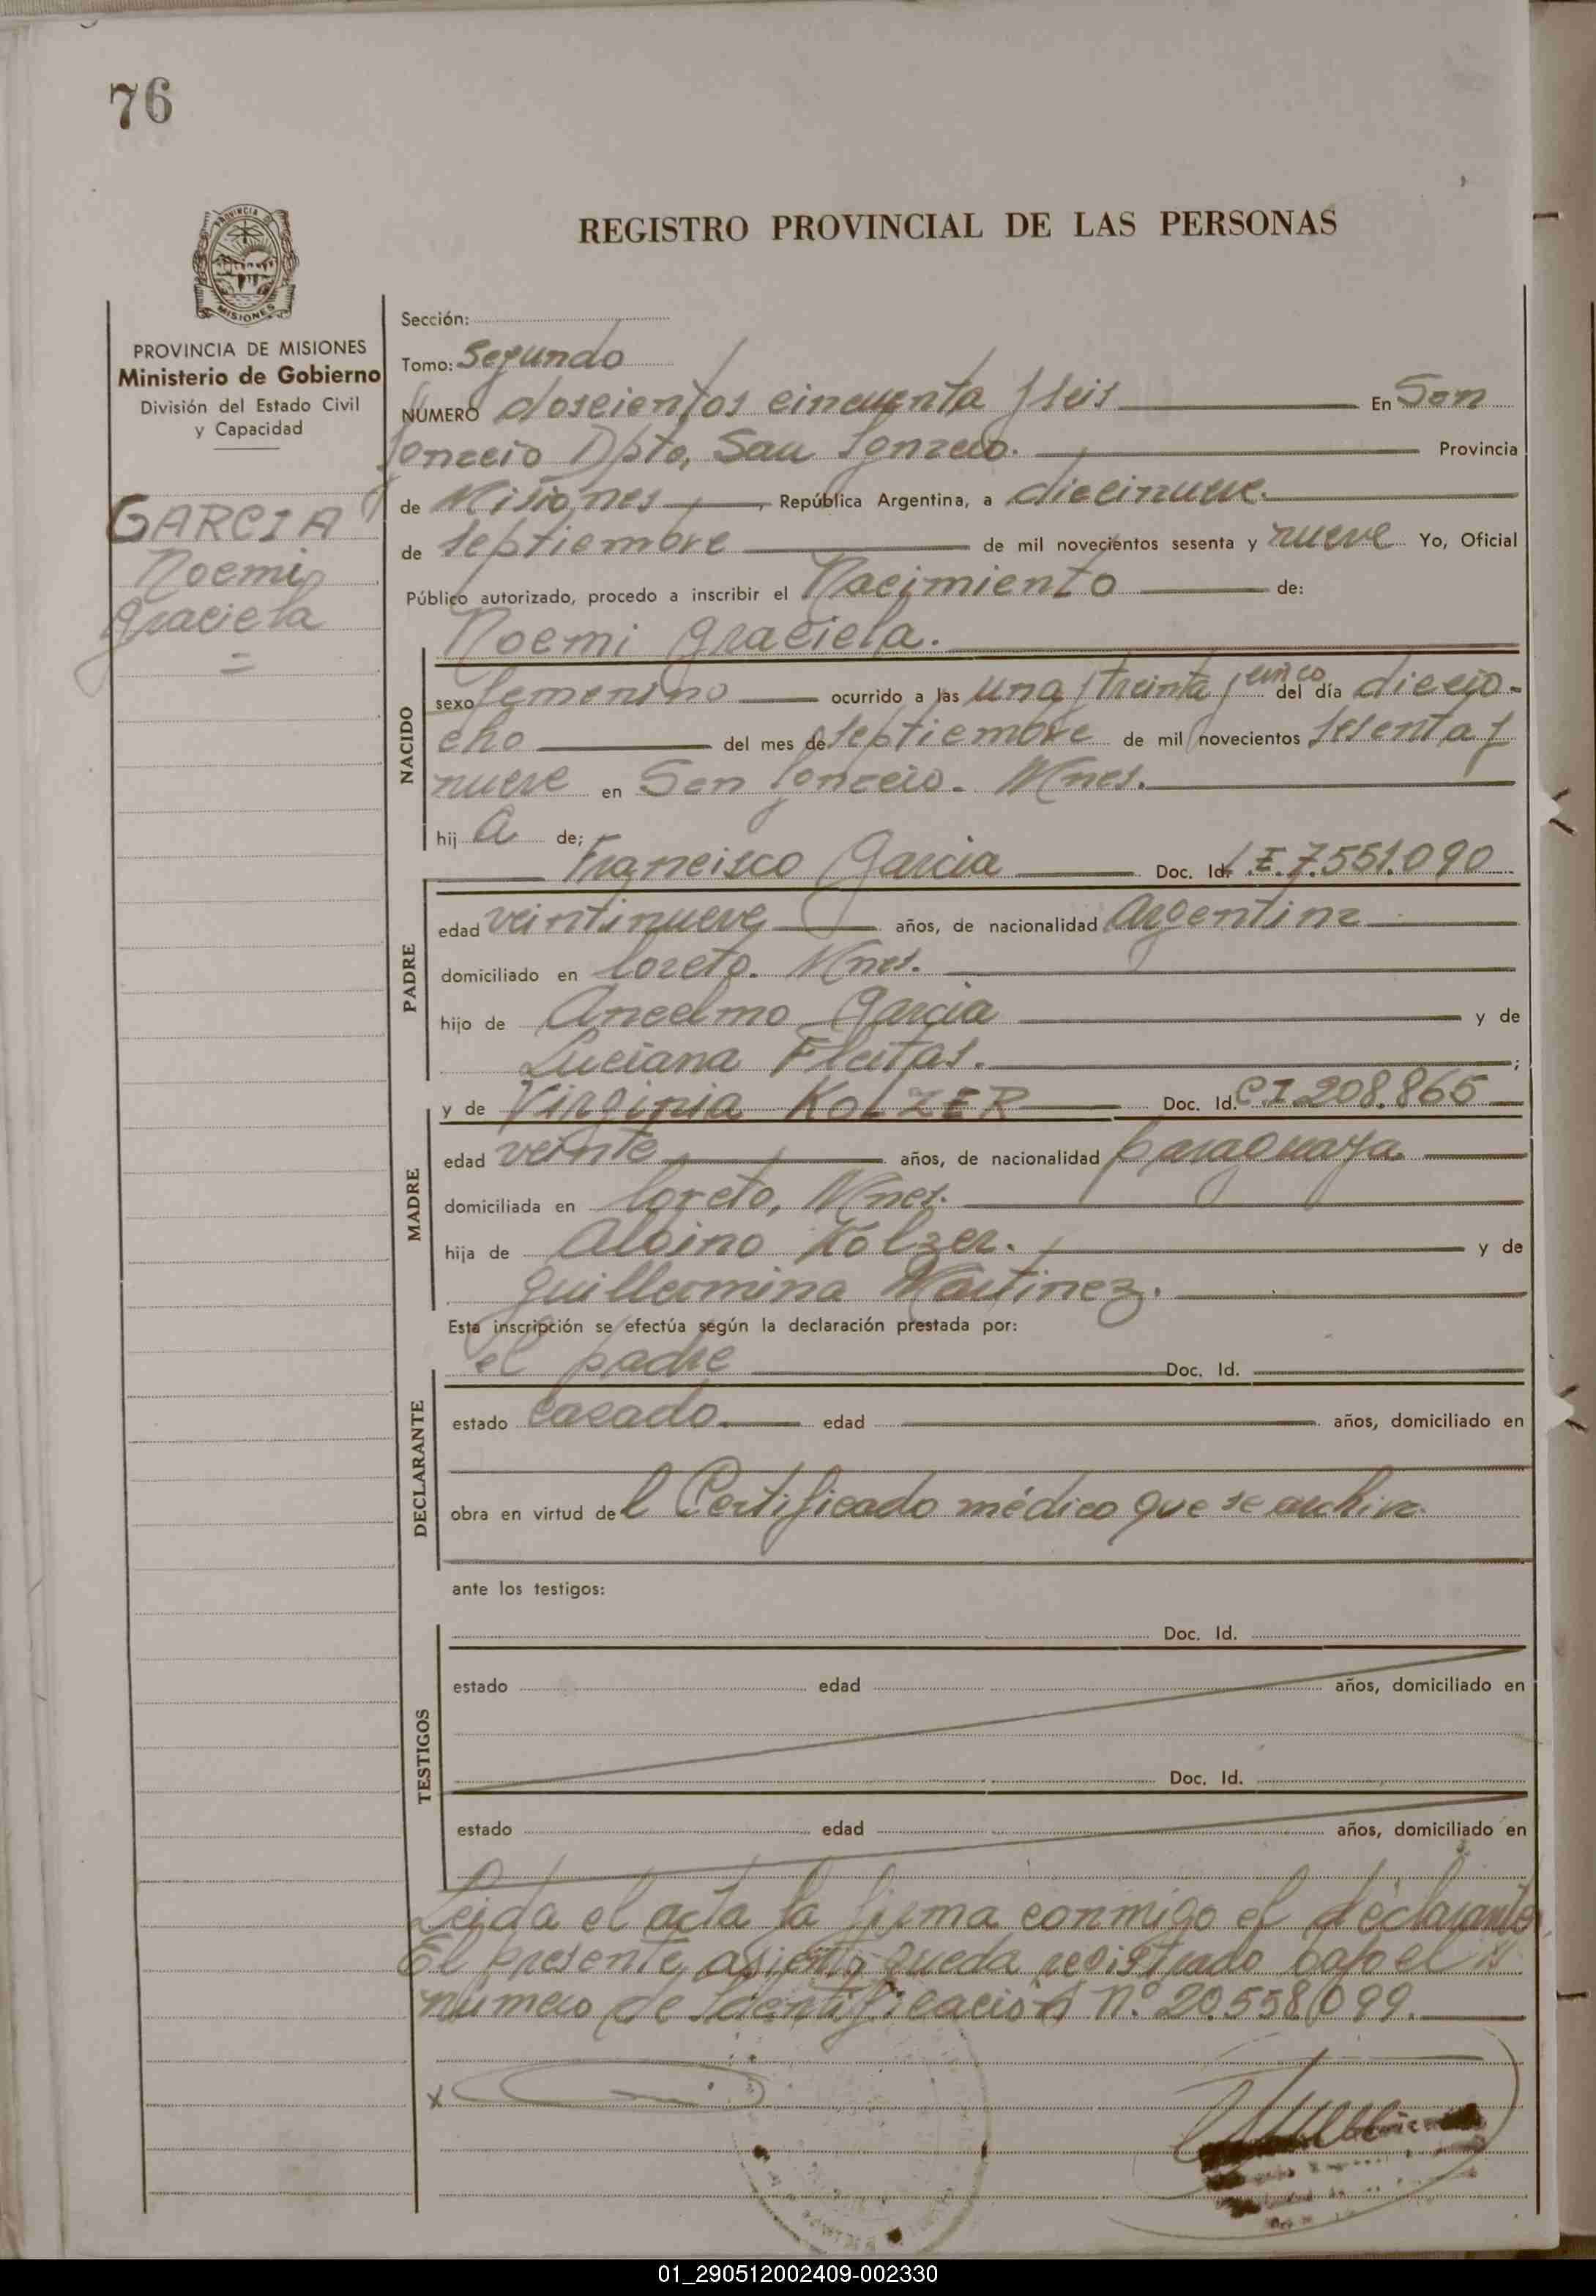 76
REGISTRO PROVINCIAL DE LAS PERSONAS
PROVINCIA DE
MISIONES
PROVINCIA DE MISIONES
Ministerio de Gobierno
División del Estado Civil
y Capacidad
GARCIA
Noemi
Graciela
=
Sección:
Tomo: Segundo
NÚMERO doscientos cincuenta y seis En San
Ignacio Dpto, San Ignacio. Provincia
de Misiones, República Argentina, a diecinueve.
de septiembre de mil novecientos sesenta y nueve Yo, Oficial
Público autorizado, procedo a inscribir el Nacimiento de:
Noemi Graciela.
NACIDO
sexo femenino ocurrido a las una y treinta y cinco del día diecio-
cho del mes de septiembre de mil novecientos sesenta y
nueve en San Ignacio. Mnes.
hij a de;
Francisco Garcia Doc. Id. L.E. 7.551.090
PADRE
edad veintinueve años, de nacionalidad Argentina
domiciliado en Loreto. Mnes.
hijo de Ancelmo Garcia y de
Luciana Fleitas. ;
y de Virginia KOLZER Doc. Id. C.I. 208.865
MADRE
edad veinte años, de nacionalidad paraguaya.
domiciliada en Loreto, Mnes.
hija de Albino Kólzer. y de
Guillermina Martinez.
Esta inscripción se efectúa según la declaración prestada por:
el padre Doc. Id.
DECLARANTE
estado casado. edad años, domiciliado en
obra en virtud del Certificado médico que se archiva.
ante los testigos:
Doc. Id.
TESTIGOS
estado edad años, domiciliado en
Doc. Id.
estado edad años, domiciliado en
Leida el acta la firma conmigo el declarante.
El presente asiento queda registrado bajo el
número de Identificación n.º 20.558.099.
x
01_290512002409-002330